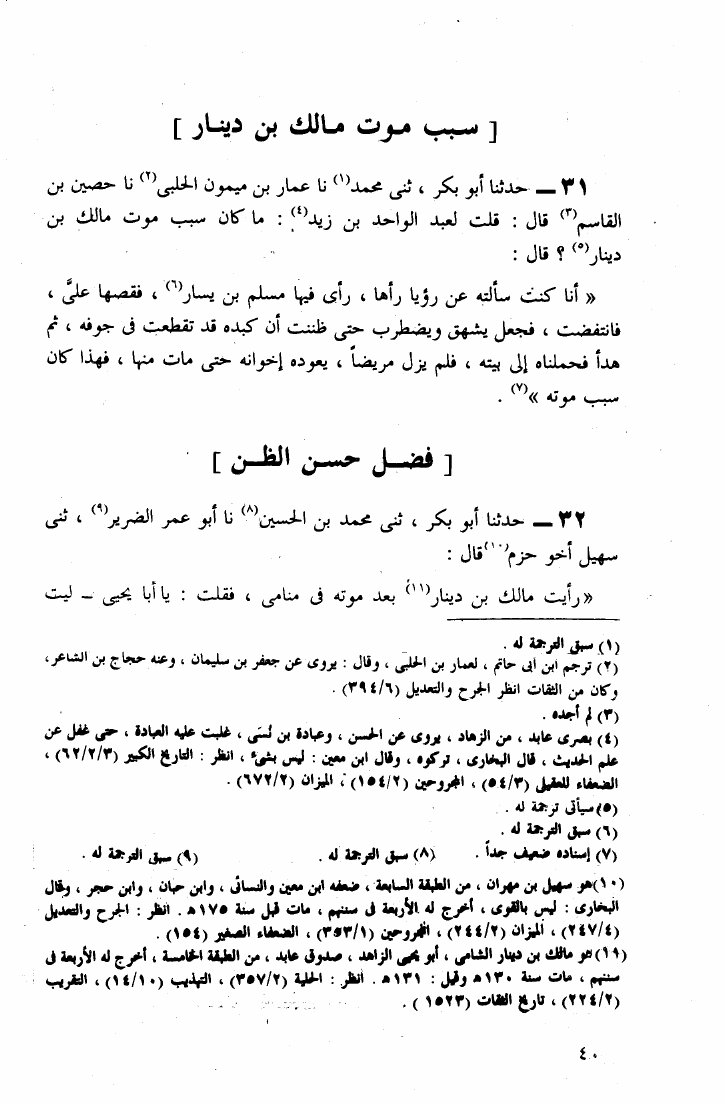 [ سبب موت مالك بن دينار ]
٣١ ــ حدثنا أبو بكر ، ثنى محمد(١) نا عمار بن ميمون الحلبي(٢) نا حصين بن
القاسم(٣) قال : قلت لعبد الواحد بن زيد(٤) : ما كان سبب موت مالك بن
دينار(٥) ؟ قال :
« أنا كنت سألته عن رؤيا رأها ، رأى فيها مسلم بن يسار(٦) ، فقصها علىَّ ،
فانتفضت ، فجعل يشهق ويضطرب حتى ظننت أن كبده قد تقطعت فى جوفه ، ثم
هدأ فحملناه إلى بيته ، فلم يزل مريضاً ، يعوده إخوانه حتى مات منها ، فهذا كان
سبب موته »(٧) .
[ فضل حسن الظن ]
٣٢ ــ حدثنا أبو بكر ، ثنى محمد بن الحسين(٨) نا أبو عمر الضرير(٩) ، ثنى
سهيل أخو حزم(١٠) قال :
«رأيت مالك بن دينار(١١) بعد موته فى منامى ، فقلت : يا أبا يحيى ــ ليت
(١) سبق الترجمة له .
(٢) ترجم ابن أبى حاتم ، لعمار بن الحلبى ، وقال : يروى عن جعفر بن سليمان ، وعنه حجاج بن الشاعر،
وكان من الثقات انظر الجرح والتعديل (٣٩٤/٦) .
(٣) لم أجده .
(٤) بصرى عابد ، من الزهاد ، يروى عن الحسن ، وعبادة بن نُسَى ، غلبت عليه العبادة ، حتى غفل عن
علم الحديث ، قال البخارى ، تركوه ، وقال ابن معين : ليس بشئ ، انظر : التاريخ الكبير (٦٢/٢/٣) ،
الضعفاء للعقيلى (٥٤/٣) ، المجروحين (١٥٤/٢) ، الميزان (٦٧٢/٢) .
(٥) سيأتى ترجمة له .
(٦) سبق الترجمة له .
(٧) إسناده ضعيف جداً . (٨) سبق الترجمة له . (٩) سبق الترجمة له .
(١٠) هو سهيل بن مهران ، من الطبقة السابعة ، ضعفه ابن معين والنسائى ، وابن حبان ، وابن حجر ، وقال
البخارى : ليس بالقوى ، أخرج له الأربعة فى سننهم ، مات قبل سنة ١٧٥هـ . انظر : الجرح والتعديل
(٢٤٧/٤) ، الميزان (٢٤٤/٢) ، المجروحين (٣٥٣/١) ، الضعفاء الصغير (١٥٤) .
(١١) هو مالك بن دينار الشامى ، أبو يحيى الزاهد ، صدوق عابد ، من الطبقة الخامسة ، أخرج له الأربعة فى
سننهم ، مات سنة ١٣٠هـ وقيل : ١٣١هـ . انظر : الحلية (٣٥٧/٢) ، التهذيب (١٤/١٠) ، التقريب
(٢٢٤/٢) ، تاريخ الثقات (١٥٢٣) .
٤٠